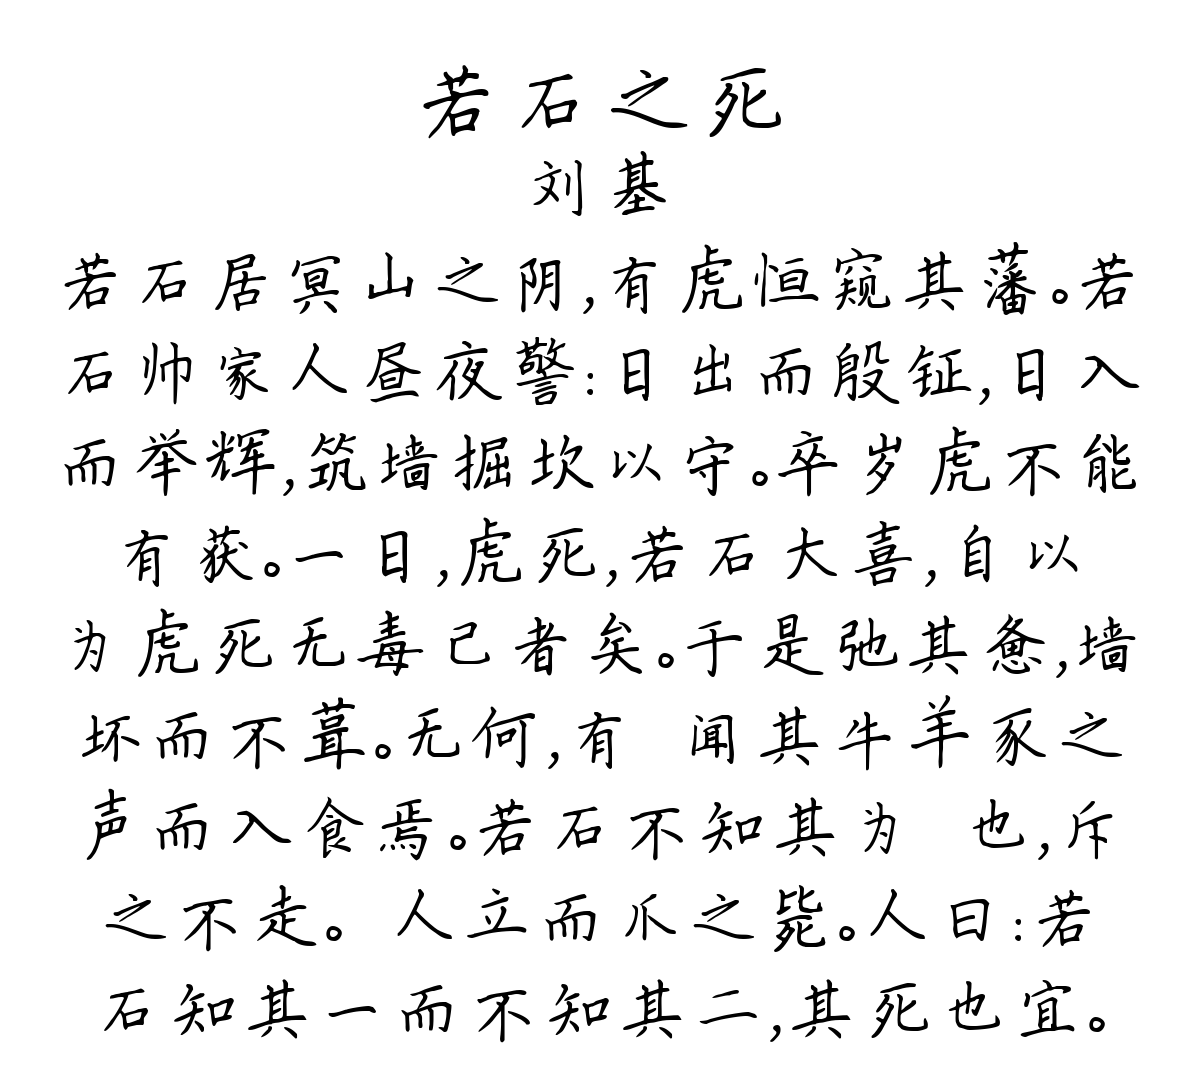 若石之死
刘基
若石居冥山之阴,有虎恒窥其藩。若
石帅家人昼夜警:日出而殷钲,日入
而举辉,筑墙掘坎以守。卒岁虎不能
有获。一日,虎死,若石大喜,自以
为虎死无毒己者矣。于是弛其惫,墙
坏而不葺。无何,有 闻其牛羊豕之
声而入食焉。若石不知其为 也,斥
之不走。 人立而爪之毙。人曰:若
石知其一而不知其二,其死也宜。